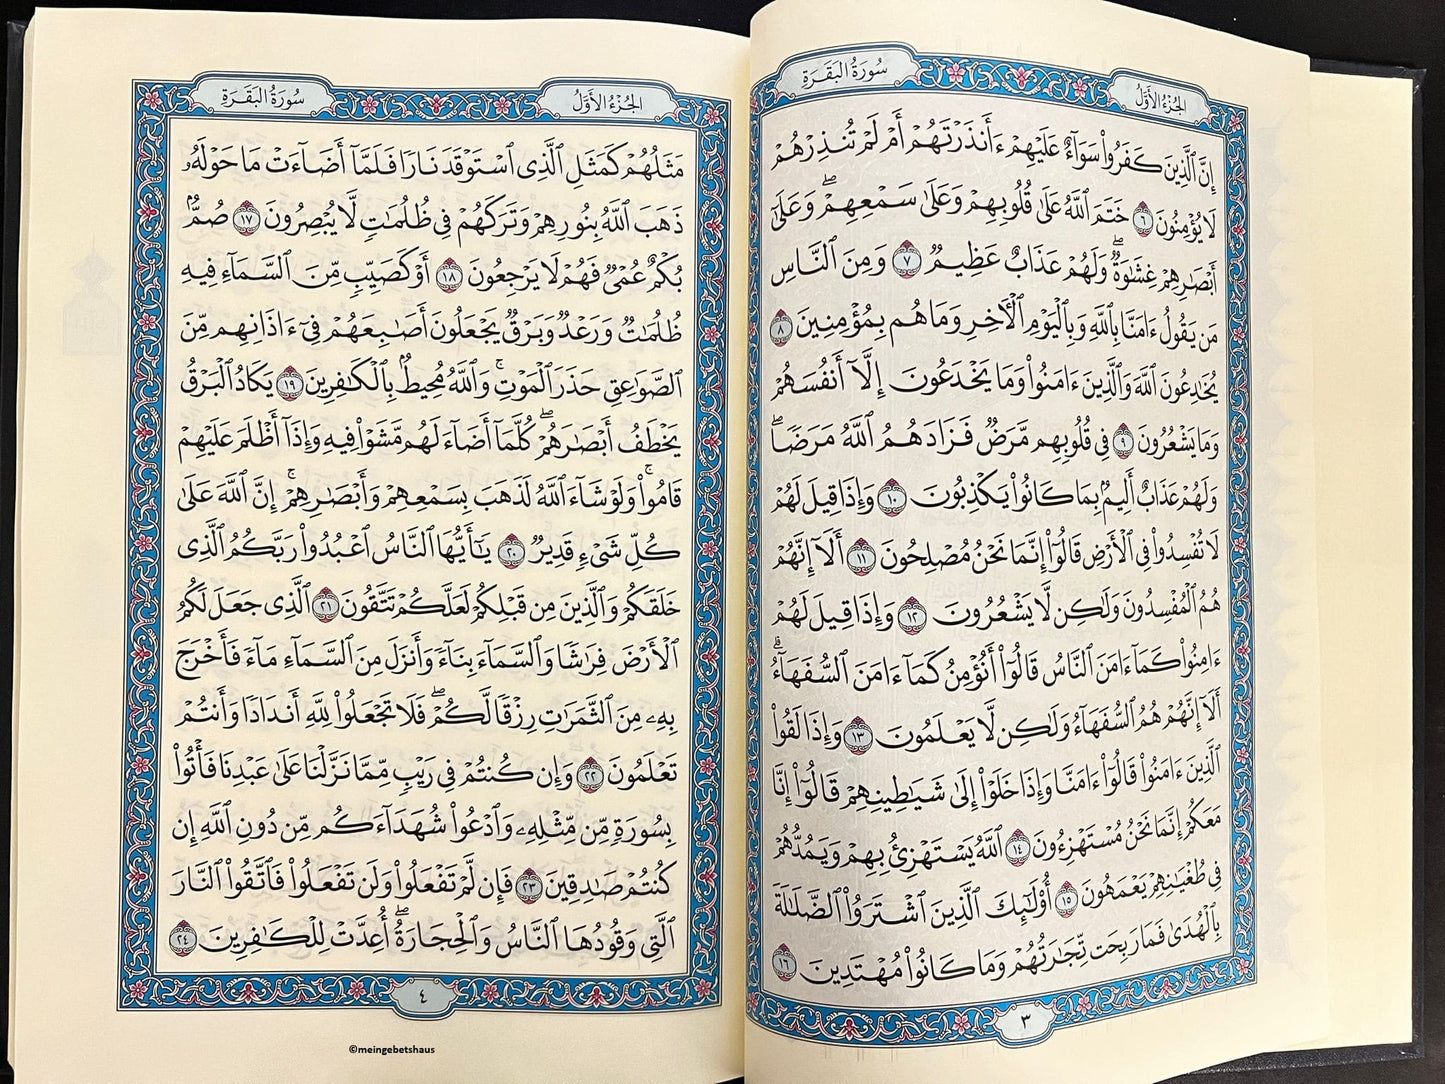 الجُزْءُ الأَوَّلُ
سُورَةُ البَقَرَةِ
إِنَّ ٱلَّذِينَ كَفَرُوا۟ سَوَآءٌ عَلَيْهِمْ ءَأَنذَرْتَهُمْ أَمْ لَمْ تُنذِرْهُمْ
لَا يُؤْمِنُونَ ٦ خَتَمَ ٱللَّهُ عَلَىٰ قُلُوبِهِمْ وَعَلَىٰ سَمْعِهِمْ ۖ وَعَلَىٰٓ
أَبْصَٰرِهِمْ غِشَٰوَةٌ ۖ وَلَهُمْ عَذَابٌ عَظِيمٌ ٧ وَمِنَ ٱلنَّاسِ
مَن يَقُولُ ءَامَنَّا بِٱللَّهِ وَبِٱلْيَوْمِ ٱلْءَاخِرِ وَمَا هُم بِمُؤْمِنِينَ ٨
يُخَٰدِعُونَ ٱللَّهَ وَٱلَّذِينَ ءَامَنُوا۟ وَمَا يَخْدَعُونَ إِلَّآ أَنفُسَهُمْ
وَمَا يَشْعُرُونَ ٩ فِى قُلُوبِهِم مَّرَضٌ فَزَادَهُمُ ٱللَّهُ مَرَضًا ۖ
وَلَهُمْ عَذَابٌ أَلِيمٌۢ بِمَا كَانُوا۟ يَكْذِبُونَ ١٠ وَإِذَا قِيلَ لَهُمْ
لَا تُفْسِدُوا۟ فِى ٱلْأَرْضِ قَالُوٓا۟ إِنَّمَا نَحْنُ مُصْلِحُونَ ١١ أَلَآ إِنَّهُمْ
هُمُ ٱلْمُفْسِدُونَ وَلَٰكِن لَّا يَشْعُرُونَ ١٢ وَإِذَا قِيلَ لَهُمْ
ءَامِنُوا۟ كَمَآ ءَامَنَ ٱلنَّاسُ قَالُوٓا۟ أَنُؤْمِنُ كَمَآ ءَامَنَ ٱلسُّفَهَآءُ ۗ
أَلَآ إِنَّهُمْ هُمُ ٱلسُّفَهَآءُ وَلَٰكِن لَّا يَعْلَمُونَ ١٣ وَإِذَا لَقُوا۟
ٱلَّذِينَ ءَامَنُوا۟ قَالُوٓا۟ ءَامَنَّا وَإِذَا خَلَوْا۟ إِلَىٰ شَيَٰطِينِهِمْ قَالُوٓا۟ إِنَّا
مَعَكُمْ إِنَّمَا نَحْنُ مُسْتَهْزِءُونَ ١٤ ٱللَّهُ يَسْتَهْزِئُ بِهِمْ وَيَمُدُّهُمْ
فِى طُغْيَٰنِهِمْ يَعْمَهُونَ ١٥ أُو۟لَٰٓئِكَ ٱلَّذِينَ ٱشْتَرَوُا۟ ٱلضَّلَٰلَةَ
بِٱلْهُدَىٰ فَمَا رَبِحَت تِّجَٰرَتُهُمْ وَمَا كَانُوا۟ مُهْتَدِينَ ١٦
٣
الجُزْءُ الأَوَّلُ
سُورَةُ البَقَرَةِ
مَثَلُهُمْ كَمَثَلِ ٱلَّذِى ٱسْتَوْقَدَ نَارًا فَلَمَّآ أَضَآءَتْ مَا حَوْلَهُۥ
ذَهَبَ ٱللَّهُ بِنُورِهِمْ وَتَرَكَهُمْ فِى ظُلُمَٰتٍ لَّا يُبْصِرُونَ ١٧ صُمٌّۢ
بُكْمٌ عُمْىٌ فَهُمْ لَا يَرْجِعُونَ ١٨ أَوْ كَصَيِّبٍ مِّنَ ٱلسَّمَآءِ فِيهِ
ظُلُمَٰتٌ وَرَعْدٌ وَبَرْقٌ يَجْعَلُونَ أَصَٰبِعَهُمْ فِىٓ ءَاذَانِهِم مِّنَ
ٱلصَّوَٰعِقِ حَذَرَ ٱلْمَوْتِ ۚ وَٱللَّهُ مُحِيطٌۢ بِٱلْكَٰفِرِينَ ١٩ يَكَادُ ٱلْبَرْقُ
يَخْطَفُ أَبْصَٰرَهُمْ ۖ كُلَّمَآ أَضَآءَ لَهُم مَّشَوْا۟ فِيهِ وَإِذَآ أَظْلَمَ عَلَيْهِمْ
قَامُوا۟ ۚ وَلَوْ شَآءَ ٱللَّهُ لَذَهَبَ بِسَمْعِهِمْ وَأَبْصَٰرِهِمْ ۚ إِنَّ ٱللَّهَ عَلَىٰ
كُلِّ شَىْءٍ قَدِيرٌ ٢٠ يَٰٓأَيُّهَا ٱلنَّاسُ ٱعْبُدُوا۟ رَبَّكُمُ ٱلَّذِى
خَلَقَكُمْ وَٱلَّذِينَ مِن قَبْلِكُمْ لَعَلَّكُمْ تَتَّقُونَ ٢١ ٱلَّذِى جَعَلَ لَكُمُ
ٱلْأَرْضَ فِرَٰشًا وَٱلسَّمَآءَ بِنَآءً وَأَنزَلَ مِنَ ٱلسَّمَآءِ مَآءً فَأَخْرَجَ
بِهِۦ مِنَ ٱلثَّمَرَٰتِ رِزْقًا لَّكُمْ ۖ فَلَا تَجْعَلُوا۟ لِلَّهِ أَندَادًا وَأَنتُمْ
تَعْلَمُونَ ٢٢ وَإِن كُنتُمْ فِى رَيْبٍ مِّمَّا نَزَّلْنَا عَلَىٰ عَبْدِنَا فَأْتُوا۟
بِسُورَةٍ مِّن مِّثْلِهِۦ وَٱدْعُوا۟ شُهَدَآءَكُم مِّن دُونِ ٱللَّهِ إِن
كُنتُمْ صَٰدِقِينَ ٢٣ فَإِن لَّمْ تَفْعَلُوا۟ وَلَن تَفْعَلُوا۟ فَٱتَّقُوا۟ ٱلنَّارَ
ٱلَّتِى وَقُودُهَا ٱلنَّاسُ وَٱلْحِجَارَةُ ۖ أُعِدَّتْ لِلْكَٰفِرِينَ ٢٤
٤
©meingebetshaus